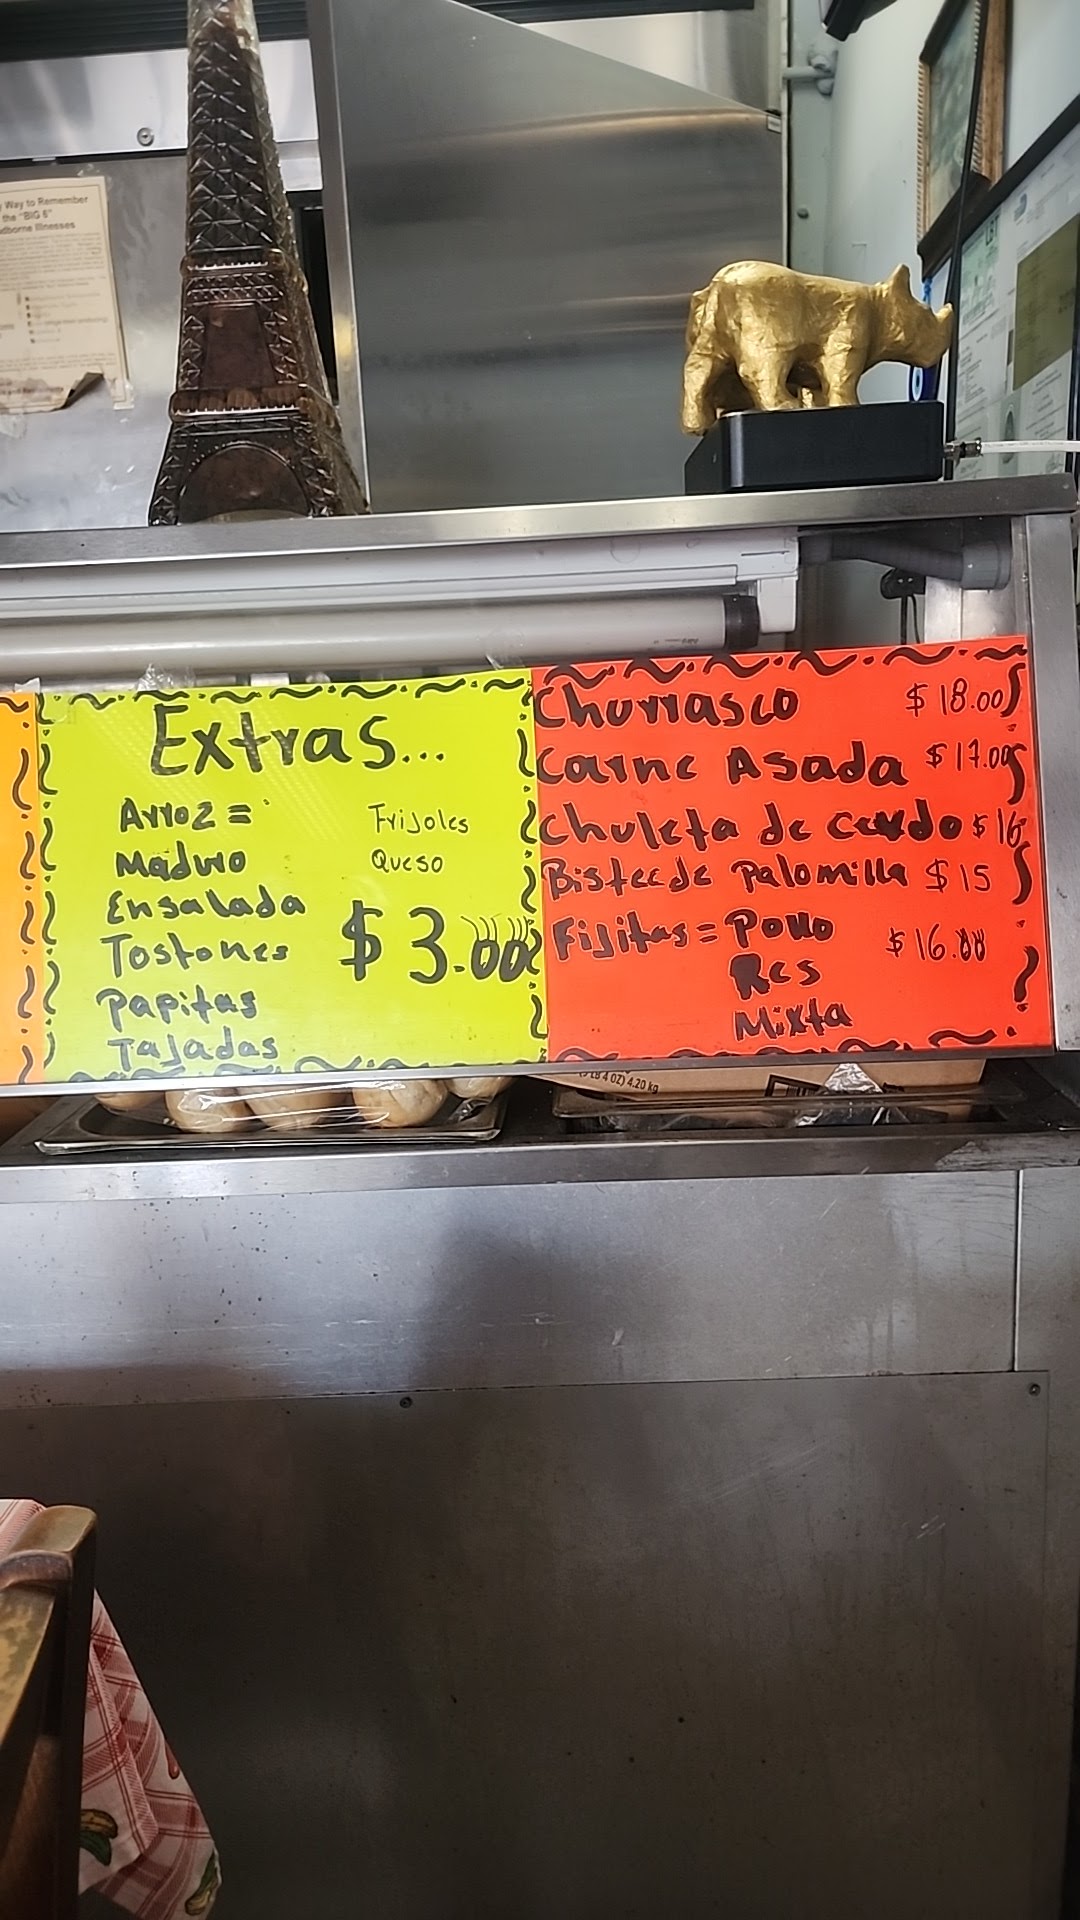 Way to Remember
the "BIG 6"
odborne Illnesses
Extras...
Arroz =
Frijoles
Maduro
Queso
Ensalada
Tostones
$ 3.00
Papitas
Tajadas
Churrasco $ 18.00
Carne Asada $ 17.00
Chuleta de cerdo $ 16
Bisteede Palomilla $ 15
Fijitas = Pollo $ 16.00
Res
Mixta
LB 4 OZ) 4.20 kg